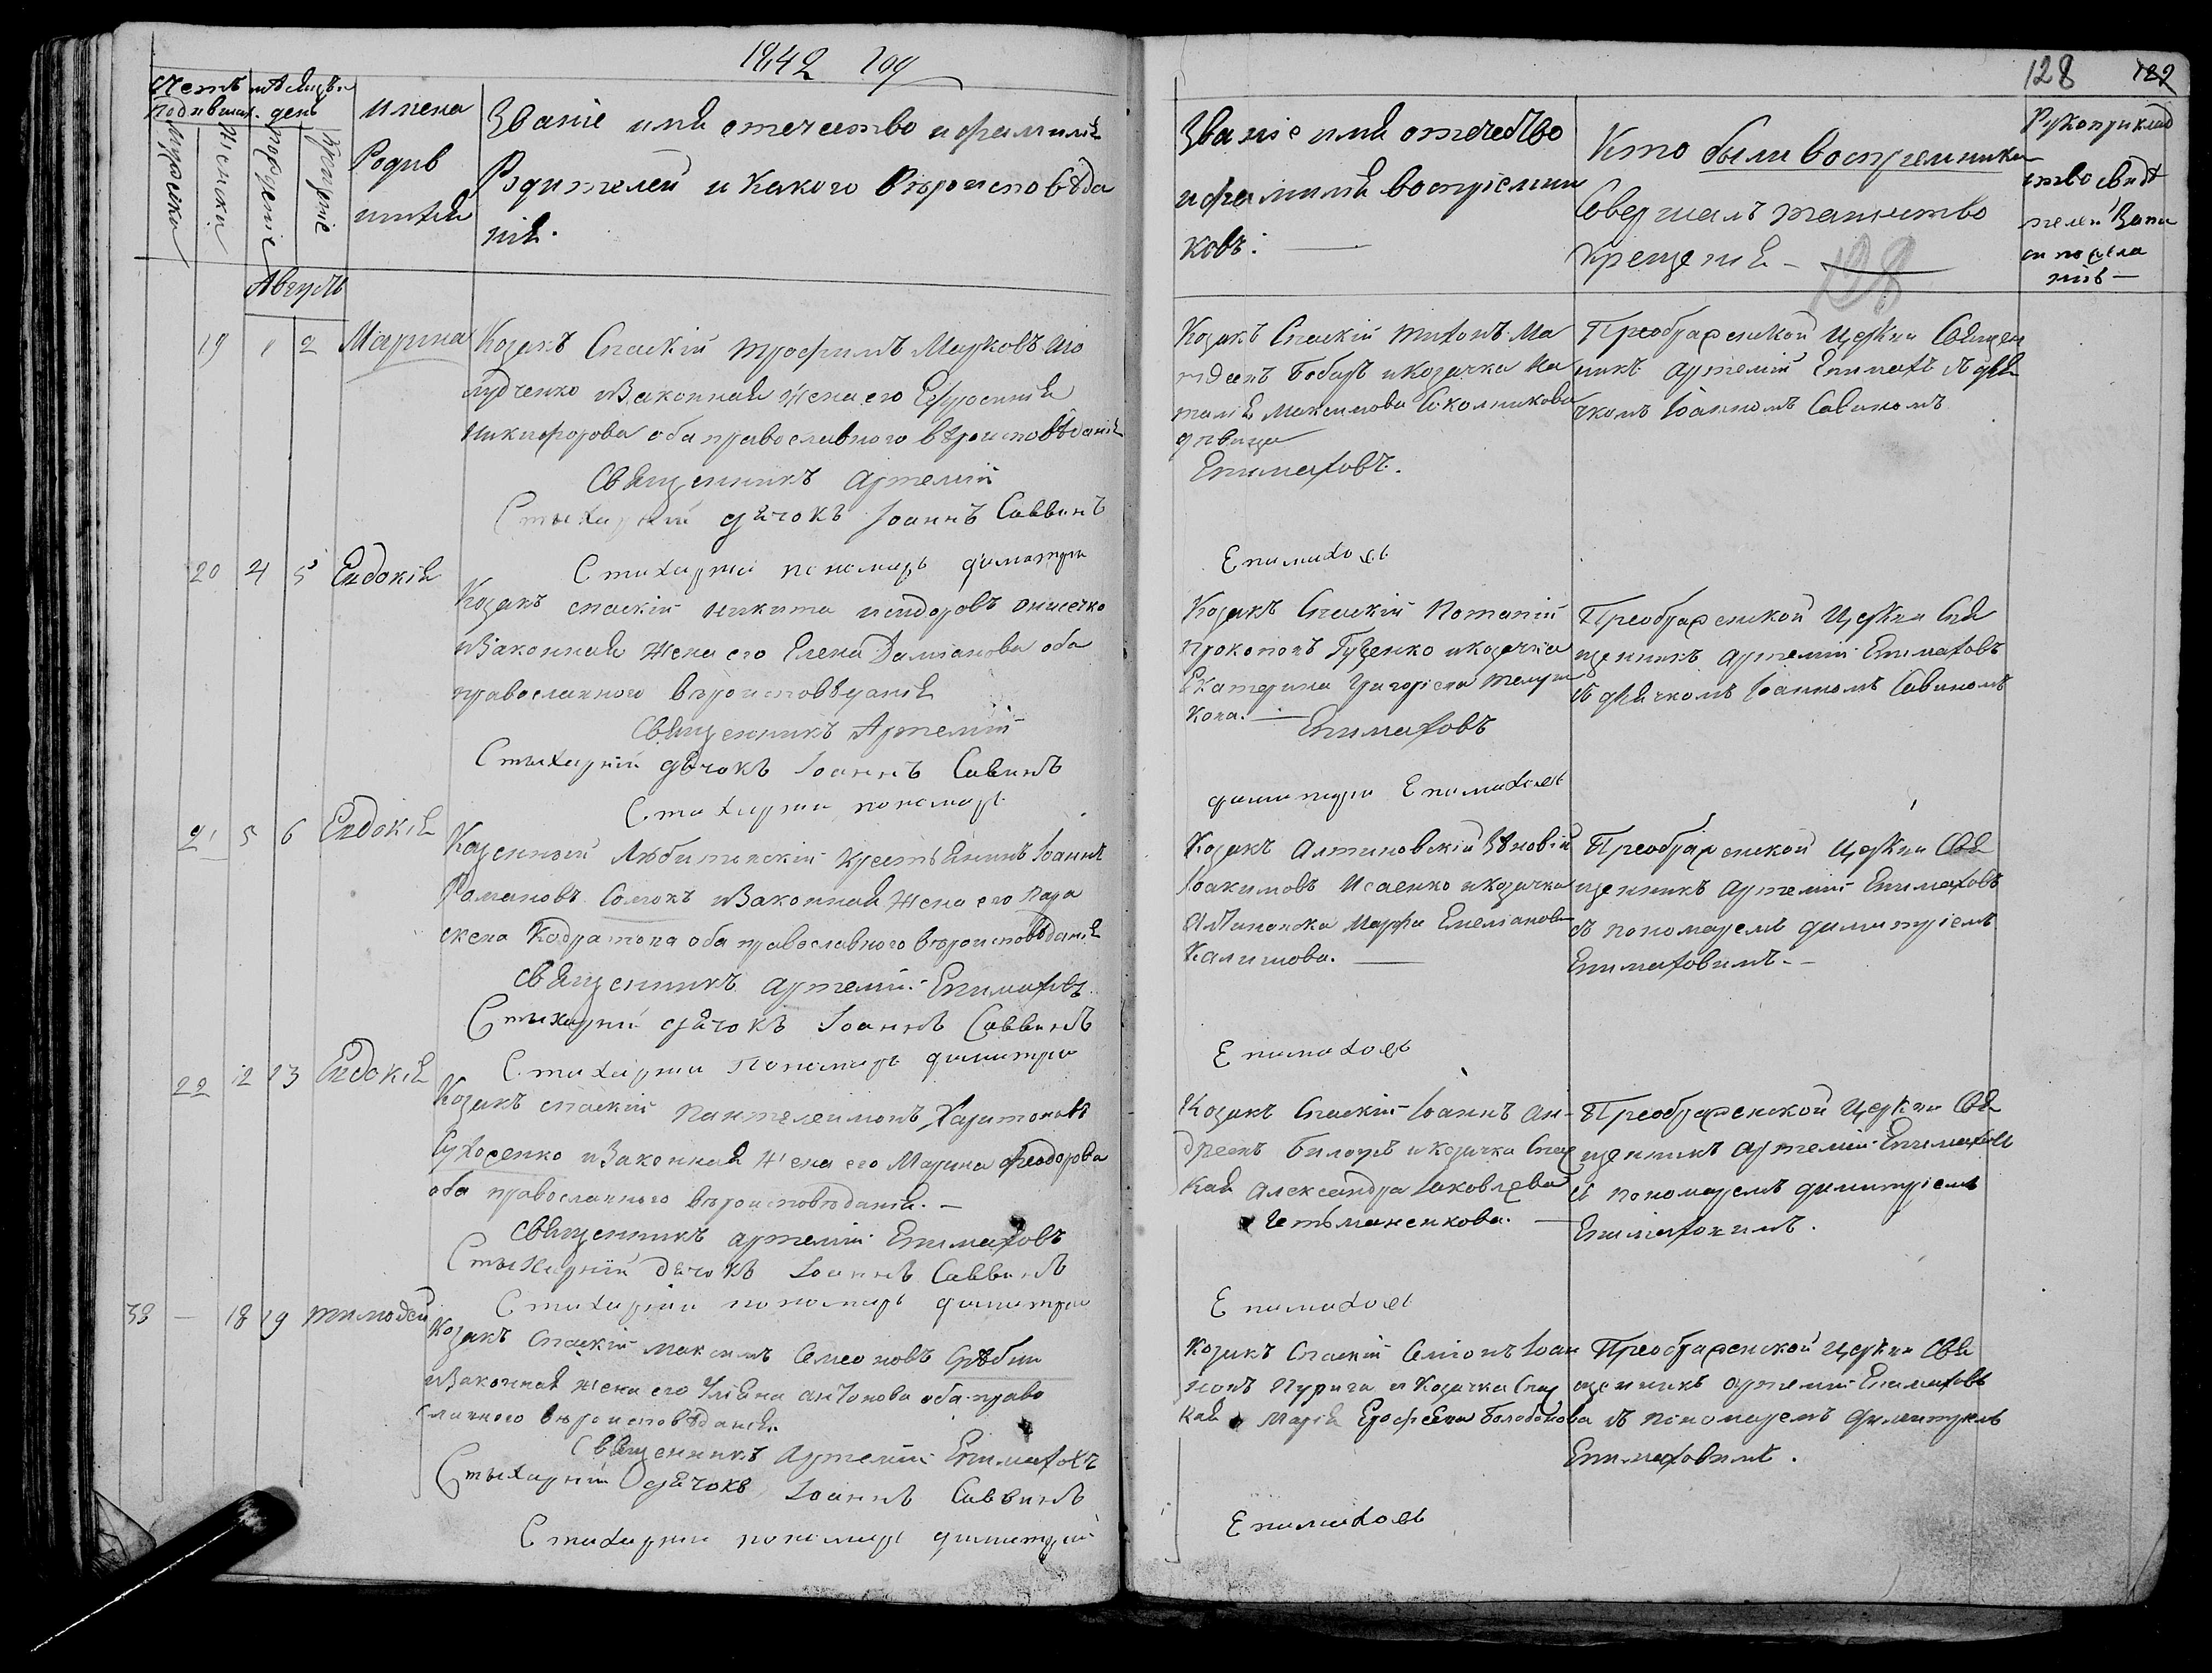 1842 год
128 122
Счетъ мѣсяцъ и
родившихъ. день
Мужеска
Женска
рожденіе
крещеніе
имена
Родив
шихся
Званіе имя отечество и фамилія
Родителей и какого вѣроисповѣда
нія.
Званіе имя отечество
и фамилия воспріемни
ковъ.
Кто были воспремники
Совершалъ таинство
крещения —
128
Рукоприклад
ство свидѣ
телей Запи
си по жела
нію —
Августъ
19 1 2 Марина
Козакъ Спаскій Трофимъ Марковъ
и Законная жена его Ефросинія
Никифорова оба православного вѣроисповѣданія
Священникъ Артемій
Стыхарній дячокъ Іоаннъ Саввинъ
Стихарни пономарь Димитри
Козакъ Спаскій Тихонъ Ма
тѳеевъ Бобырь и козачка На
талія Максимова Сколникова
девица
Епимаховъ.
Епимаховъ
Преображенской Церкви Священ
никъ Артемій Епимахъ съ дья
чкомъ Іоанномъ Савиномъ
20 4 5 Евдокія
Козакъ спаскій Никита исидоровъ Онисечко
и Законная жена его Елена Даміанова оба
православного вѣроисповѣданія
Священникъ Артемій
Стыхарній дячокъ Іоаннъ Савинъ
Стихарни пономарь
Козакъ Спаскій Потапій
Прокоповъ Гуценко и козачка
Екатерина Григоріева
кова. — Епимаховъ
димитри Епимаховъ
Преображенской Церкви Свя
щенникъ Артемій Епимаховъ
съ дьячкомъ Іоанномъ Савиномъ
21 5 6 Евдокія
Казенный Любитовскій крестьянинъ Іоаннъ
Романовъ и Законная жена его Пара
скева Кодратова оба православного вѣроисповѣданія
Священникъ Артемій Епимаховъ
Стыхарній дячокъ Іоаннъ Саввинъ
Стихарни Пономарь димитри
Козакъ Алтиновскій Зѣновій
Іоакимовъ Исаенко и козачка
Алтиновска Марфа Емеліанова
Калишова. —
Епимаховъ
Преображенской Церкви Свя
щенникъ Артемій Епимаховъ
съ пономаремъ димитріемъ
Епимаховимъ. —
22 12 13 Евдокія
Козакъ спаскій Пантелеимонъ Харитоновъ
Сухосенко и Законная жена его Марина Ѳеодорова
оба православного вѣроисповѣданія. —
Священникъ Артемій Епимаховъ
Стыхарній дячокъ Іоаннъ Саввинъ
Стихарни пономарь димитри
Козакъ Спаскій Іоаннъ Ан-
дреевъ Билоусъ и козачка Спас
кая Александра Іаковлева
Гетьманенкова. —
Епимаховъ
Преображенской Церкви Свя
щенникъ Артемій Епимаховъ
съ пономаремъ димитріемъ
Епимаховимъ.
33 — 18 19 тимоѳей
Козакъ Спаскій Максимъ Симеоновъ
и Законная жена его Уліяна антонова оба право
славного вѣроисповѣданія.
Священникъ Артемій Епимаховъ
Стыхарній дячокъ Іоаннъ Саввинъ
Стихарни пономарь димитрій
Козакъ Спаскій Симіонъ Іоан
новъ Пурига и Козачка Спас
кая Марія Ерофеева Болобонова
Епимаховъ
Преображенской Церкви Свя
щенникъ Артемій Епимаховъ
съ пономаремъ Димитріемъ
Епимаховимъ.